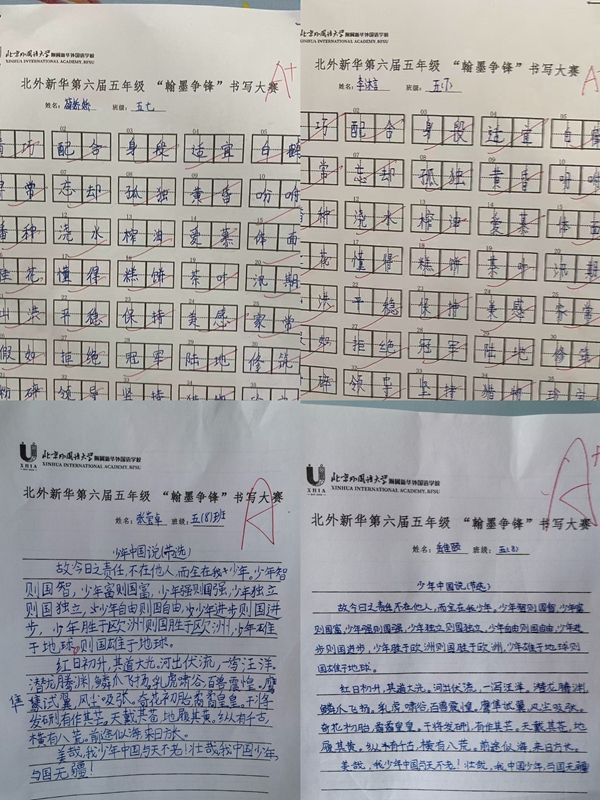 北京外国语大学附属新华外国语学校
XINHUA INTERNATIONAL ACADEMY, BFSU
北外新华第六届五年级 “翰墨争锋” 书写大赛
A+
姓名: 班级: 五七
巧 配合 身段 适宜 白鹤
常 忘却 孤独 黄昏 吩咐
番种 浇水 榨油 爱慕 体面
桂花 懂得 糕饼 茶叶 汛期
山洪 平稳 保持 美感 家常
假如 拒绝 冠军 陆地 修筑
粉碎 领导 坚持
北京外国语大学附属新华外国语学校
XINHUA INTERNATIONAL ACADEMY, BFSU
北外新华第六届五年级 “翰墨争锋” 书写大赛
A+
姓名: 班级:
巧 配合 身段 适宜 白鹤
常 忘却 孤独 黄昏 吩咐
种 浇水 榨油 爱慕 体面
花 懂得 糕饼 茶叶 汛期
洪 平稳 保持 美感 家常
如 拒绝 冠军 陆地 修筑
碎 领导 坚持 猎物
XHIA
北京外国语大学附属新华外国语学校
XINHUA INTERNATIONAL ACADEMY, BFSU
北外新华第六届五年级 “翰墨争锋” 书写大赛
A
姓名: 班级: 五(8)班
少年中国说(节选)
故今日之责任,不在他人,而全在我少年。少年智
则国智,少年富则国富,少年强则国强,少年独立
则国独立,少年自由则国自由,少年进步则国进
步,少年胜于欧洲则国胜于欧洲,少年雄
于地球,则国雄于地球。
红日初升,其道大光。河出伏流,一泻汪洋。
潜龙腾渊,鳞爪飞扬。乳虎啸谷,百兽震惶。鹰
隼试翼,风尘吸张。奇花初胎,矞矞皇皇。干将
发硎,有作其芒。天戴其苍,地履其黄。纵有千古,
横有八荒。前途似海,来日方长。
美哉,我少年中国,与天不老!壮哉,我中国少年,
与国无疆!
XHIA
北京外国语大学附属新华外国语学校
XINHUA INTERNATIONAL ACADEMY, BFSU
北外新华第六届五年级 “翰墨争锋” 书写大赛
A+
姓名: 班级: 五(8)
少年中国说(节选)
故今日之责任,不在他人,而全在我少年。少年智则国智,少年富
则国富,少年强则国强,少年独立则国独立,少年自由则国自由,少年进
步则国进步,少年胜于欧洲则国胜于欧洲,少年雄于地球则
国雄于地球。
红日初升,其道大光。河出伏流,一泻汪洋。潜龙腾渊,
鳞爪飞扬。乳虎啸谷,百兽震惶。鹰隼试翼,风尘吸张。
奇花初胎,矞矞皇皇。干将发硎,有作其芒。天戴其苍,地
履其黄。纵有千古,横有八荒。前途似海,来日方长。
美哉,我少年中国,与天不老!壮哉,我中国少年,与国无疆